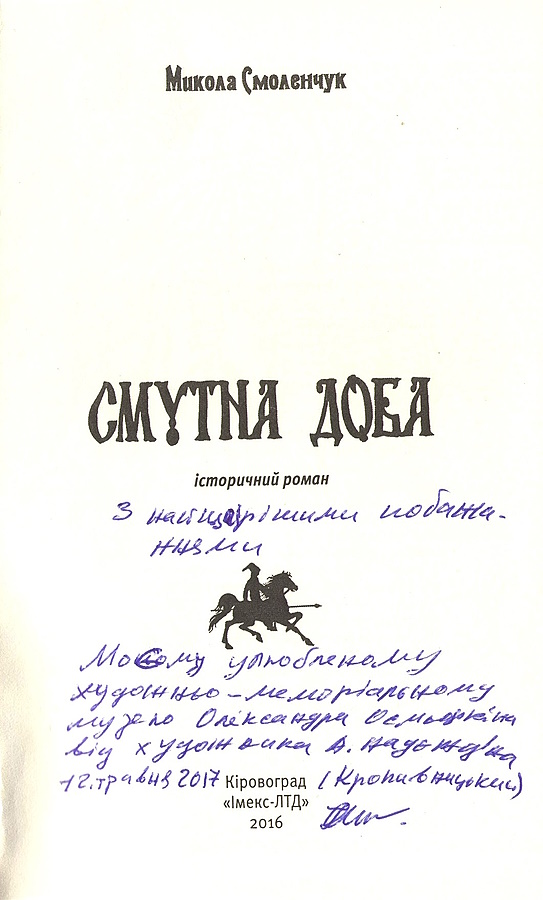 Микола Смоленчук
СМУТНА ДОБА
історичний роман
З найщирішими побажа-
ннями
Моєму улюбленому
художньо-меморіальному
музею Олександра Осмьоркіна
від художника А. Надєждіна
12.травня 2017 (Кропивницький)
Кіровоград
«Імекс-ЛТД»
2016